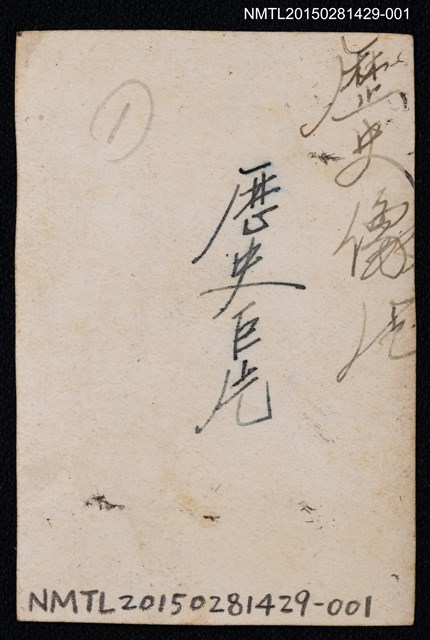 NMTL20150281429-001
歷史
歷史巨片
1
NMTL20150281429-001